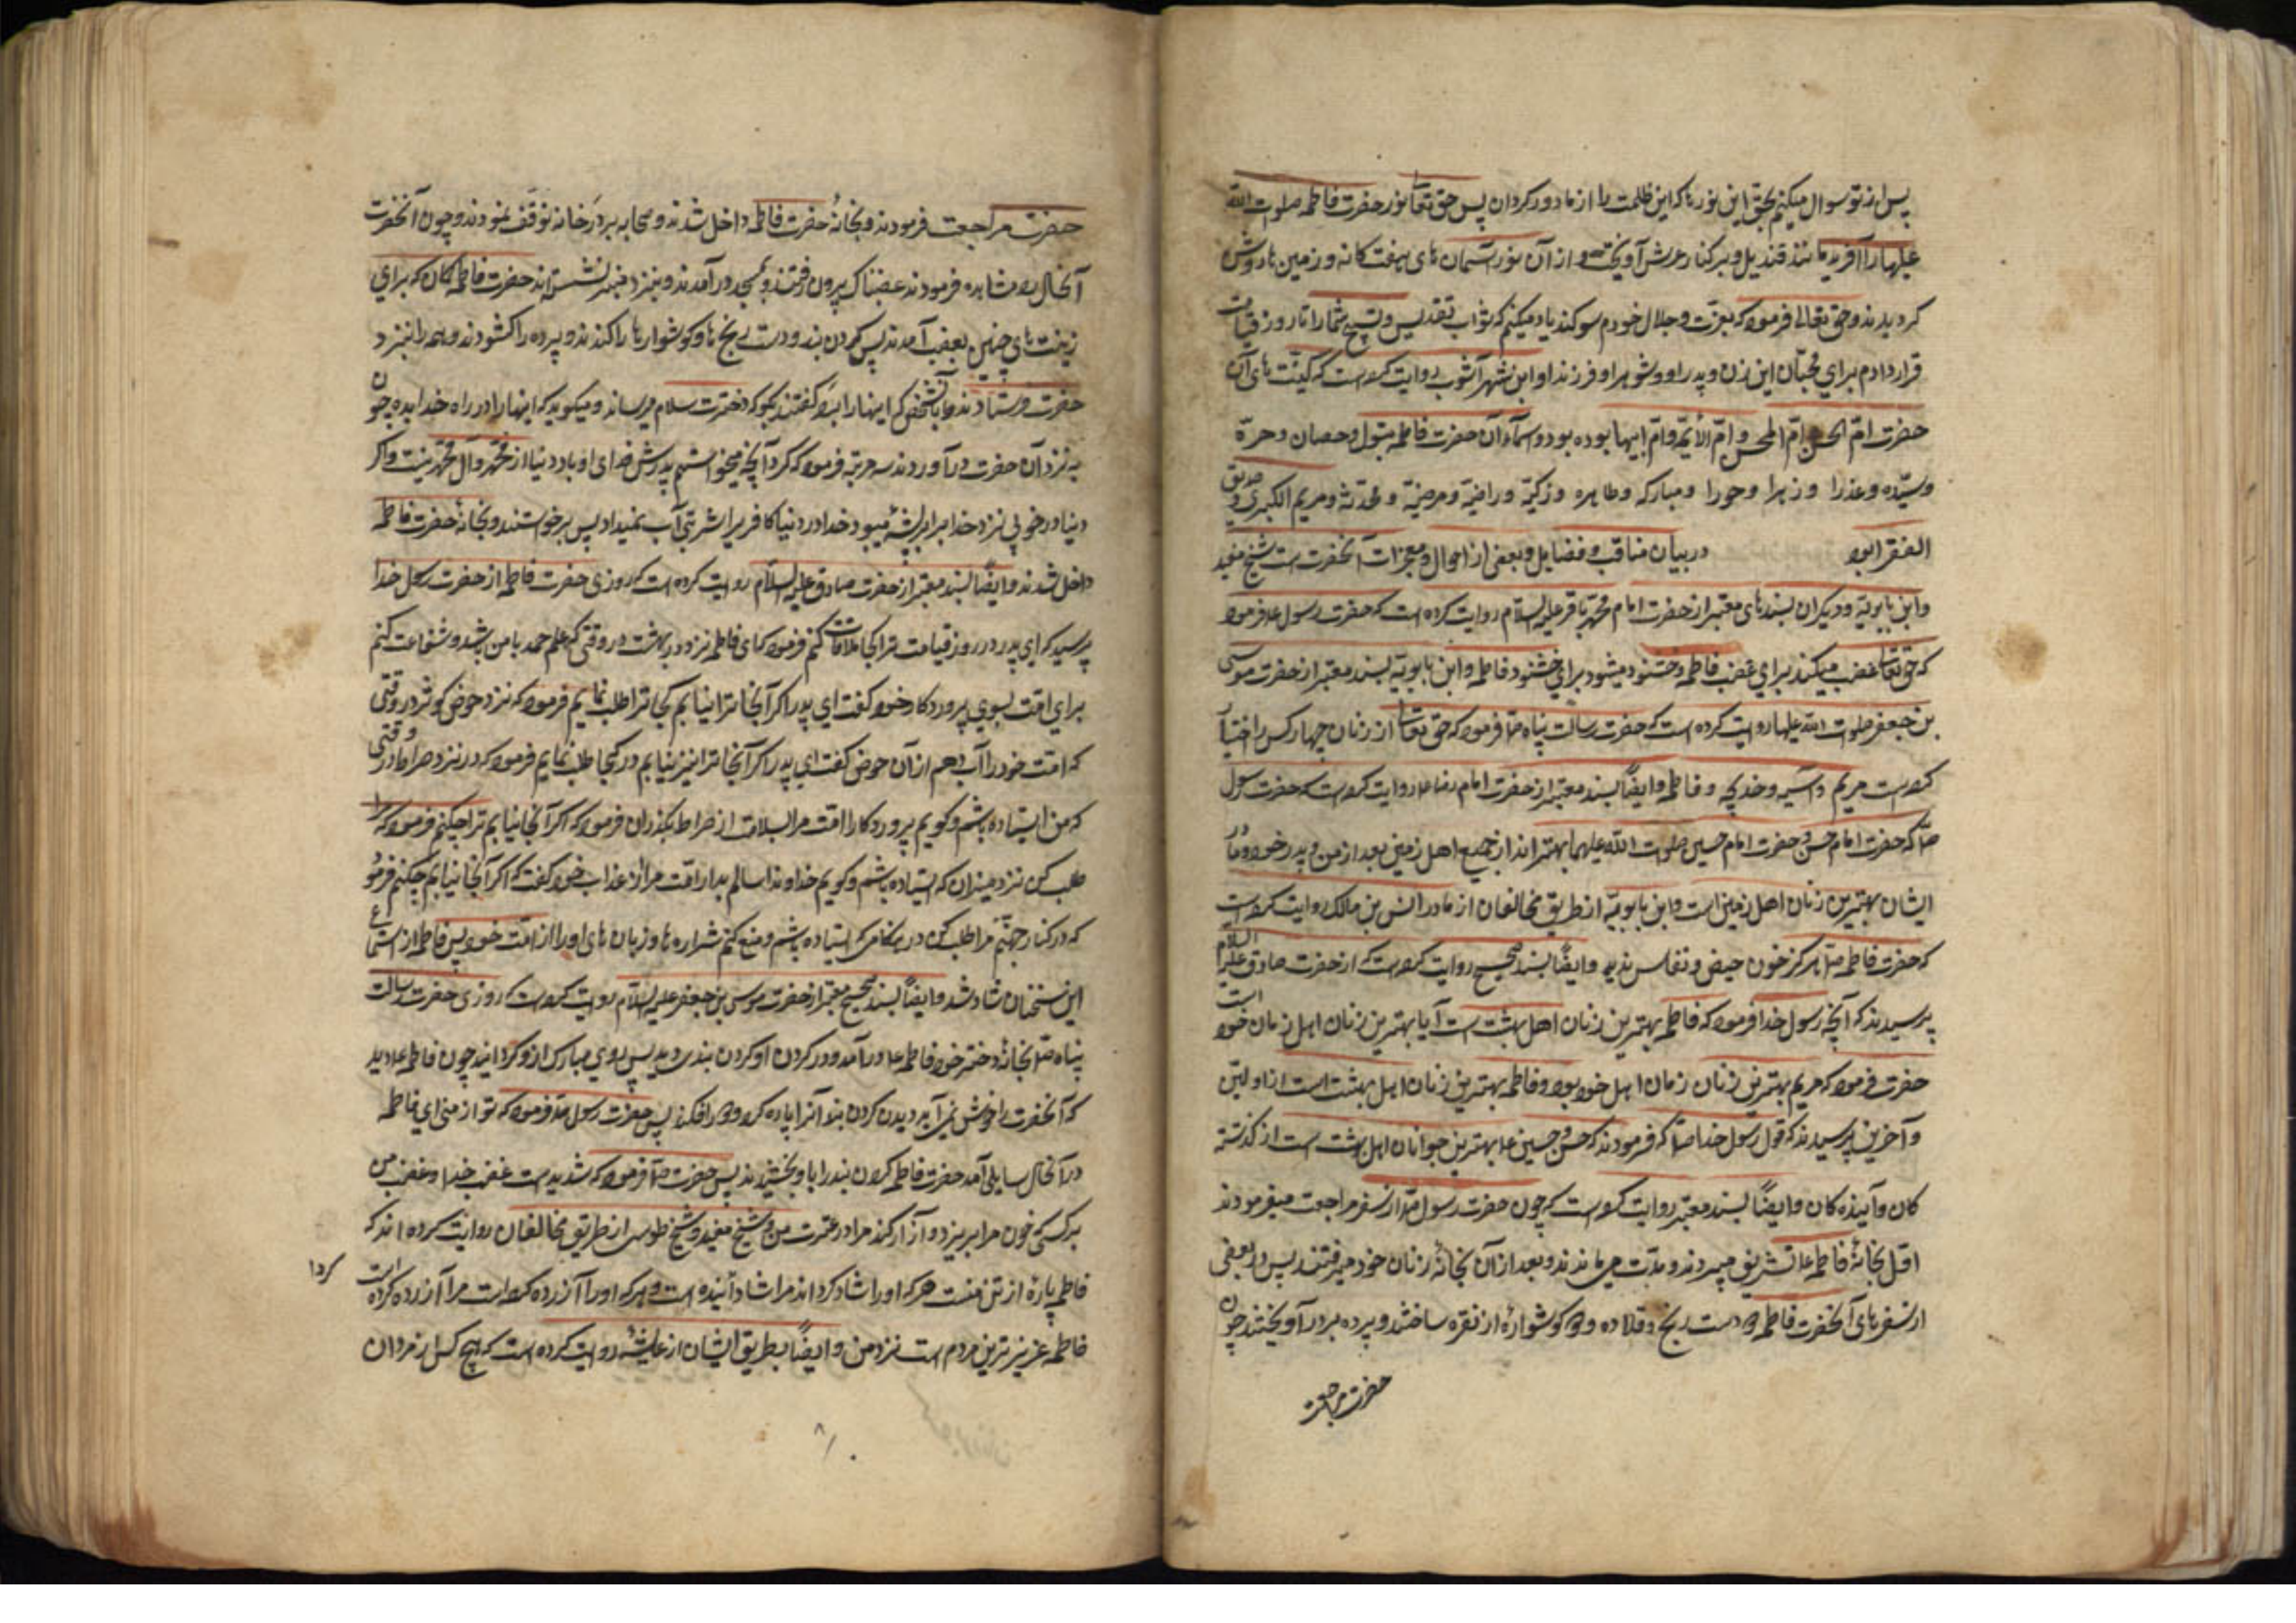 پس از تو سوال میکنیم بحق این نورها که این ظلمت را از ما دور کردان پس حق تعا نور حضرت فاطمه صلوات الله
علیها را آفرید مانند قندیل و بر کنار عرش آویخت و از آن نور آسمان های هفت کانه و زمین ها روشن
کردیدند و حق تعالی فرمود که بعزت و جلال خودم سوکند یاد میکنم که ثواب تقدیس و تسبیح شما را تا روز قیامت
قرار دادم برای محبان این زن و پدر او و شوهر او و فرزند او و ابن شهر آشوب روایت کرده است که کنیت های آن
حضرت ام الحسن و ام المحسن و ام الائمه و ام ابیها بوده بود و اسماء آن حضرت فاطمه بتول و حصان و حره
و سیده و عذرا و زهرا و حورا و مبارکه و طاهره و زکیه و راضیه و مرضیه و محدثه و مریم الکبری و صدیق
در بیان مناقب و فضایل و بعضی از احوال و معجزات آنحضرت است شیخ مفید
و ابن بابویه و دیکران بسندهای معتبر از حضرت امام محمد باقر علیه السلام روایت کرده است که حضرت رسول فرمود
که حق تعا غضب میکند برای غضب فاطمه و خشنود میشود برای خشنود فاطمه و ابن بابویه بسند معتبر از حضرت موسی
بن جعفر صلوات الله علیها روایت کرده است که حضرت رسالت پناه ص فرمود که حق تعا از زنان چهار کس را اختیار
کرده است مریم و آسیه و خدیجه و فاطمه و ایضاً بسند معتبر از حضرت امام رضا ع روایت کرده است که حضرت رسول
ص که حضرت امام حسن و حضرت امام حسین صلوات الله علیهما بهتراند از جمیع اهل زمین بعد از من و پدر خود و مادر
ایشان بهترین زنان اهل زمین است و ابن بابویه از طریق مخالفان از مادر انس بن مالک روایت کرده است
که حضرت فاطمه ص هرکز خون حیض و نفاس ندید و ایضاً بسند صحیح روایت کرده است که از حضرت صادق علیه السلام
پرسیدند که آنچه رسول خدا فرمود که فاطمه بهترین زنان اهل بهشت است آیا بهترین زنان اهل زمان خود است
حضرت فرمود که مریم بهترین زنان زمان اهل خود بود و فاطمه بهترین زنان اهل بهشت است از اولین
و آخرین پرسیدند که قول رسول خدا ص که فرمودند که حسن و حسین ع بهترین جوانان اهل بهشت است از کذشته
کان و آینده کان و ایضاً بسند معتبر روایت کرده است که چون حضرت رسول ص از سفر مراجعت میفرمودند
اول بخانهٔ فاطمه ع تشریف میبردند و مدت می ماندند و بعد از آن بخانهٔ زنان خود میرفتند پس در بعضی
از سفرهای آنحضرت فاطمه دست رنج و قلاده و کوشواره از نقره ساختند و پرده بر در آویختند چون
حضرت مراجعت
حضرت مراجعت فرمودند و بخانهٔ حضرت فاطمه داخل شدند و صحابه بر در خانه توقف نمودند و چون آنحضرت
آنحال مشاهده فرمودند غضبناک بیرون رفتند و بمسجد در آمدند و بنزد منبر نشستند حضرت فاطمه کمان که برای
زینت های چنین بغضب آمدند پس کردن بند و دست رنج ها و کوشوارها را کندند و پرده را کشودند و همه را بنزد
حضرت فرستادند و بآنشخص که اینها را برد کفتند بکو که دخترت سلام میرساند و میکوید که اینها را در راه خدا بده چون
به نزد آن حضرت در آوردند سه مرتبه فرمود که کرد آنچه میخواستم پدرش فدای او باد دنیا از محمد و آل محمد نیست و اکر
دنیا در خوبی نزد خدا برابر پشه میبود خدا در دنیا کافر را شربتی آب نمیداد پس برخواستند و بخانهٔ حضرت فاطمه
داخل شدند و ایضاً بسند معتبر از حضرت صادق علیه السلام روایت کرده است که روزی حضرت فاطمه از حضرت رسول خدا
پرسید که ای پدر در روز قیامت ترا کجا ملاقات کنم فرمود که ای فاطمه نزد در بهشت در وقتی که علم حمد با من باشد و شفاعت کنم
برای امت بسوی پروردکار خود کفت ای پدر اکر آنجا ترا نیابم کجا ترا طلب نمایم فرمود که نزد حوض کوثر در وقتی
که امت خود را آب دهم از آن حوض کفت ای پدر اکر آنجا ترا نیز نیابم در کجا طلب نمایم فرمود که در نزد صراط در وقتی
که من ایستاده باشم و کویم پروردکارا امت مرا بسلامت از صراط بکذران فرمود که اکر آنجا نیابم ترا چکنم فرمود که مرا
طلب کن نزد میزان که ایستاده باشم و کویم خداوندا سالم بدار امت مرا از عذاب خود کفت که اکر آنجا نیابم چکنم فرمود
که در کنار جهنم مرا طلب کن در هنکامی که ایستاده باشم و منع کنم شراره ها و زبان های او را از امت خود پس فاطمه از استماع
این سخنان شاد شد و ایضاً بسند صحیح معتبر از حضرت موسی بن جعفر علیه السلام روایت کرده است که روزی حضرت رسالت
پناه ص بخانهٔ دختر خود فاطمه ع در آمد و در کردن او کردن بندی دید پس روی مبارک از او کردانید چون فاطمه ع دید
که آنحضرت را خوش نمی آید دیدن کردن بند آنرا پاره کرد و افکند پس حضرت رسول ص فرمود که تو از منی ای فاطمه
در آنحال سایلی آمد حضرت فاطمه کردن بند را باو بخشیدند پس حضرت ص فرمود که شدید است غضب خدا و غضب من
بر کسی که خون مرا بریزد و آزار کند مرا در عترت من و شیخ مفید و شیخ طوسی از طریق مخالفان روایت کرده اند که
فاطمه پارهٔ از تن منست هر که او را شاد کرداند مرا شاد کردانیده است و هر که او را آزرده کرده است مرا آزرده کرده است
فاطمه عزیزترین مردم است نزد من و ایضاً بطریق ایشان از عایشه روایت کرده است که هیچ کس از مردان